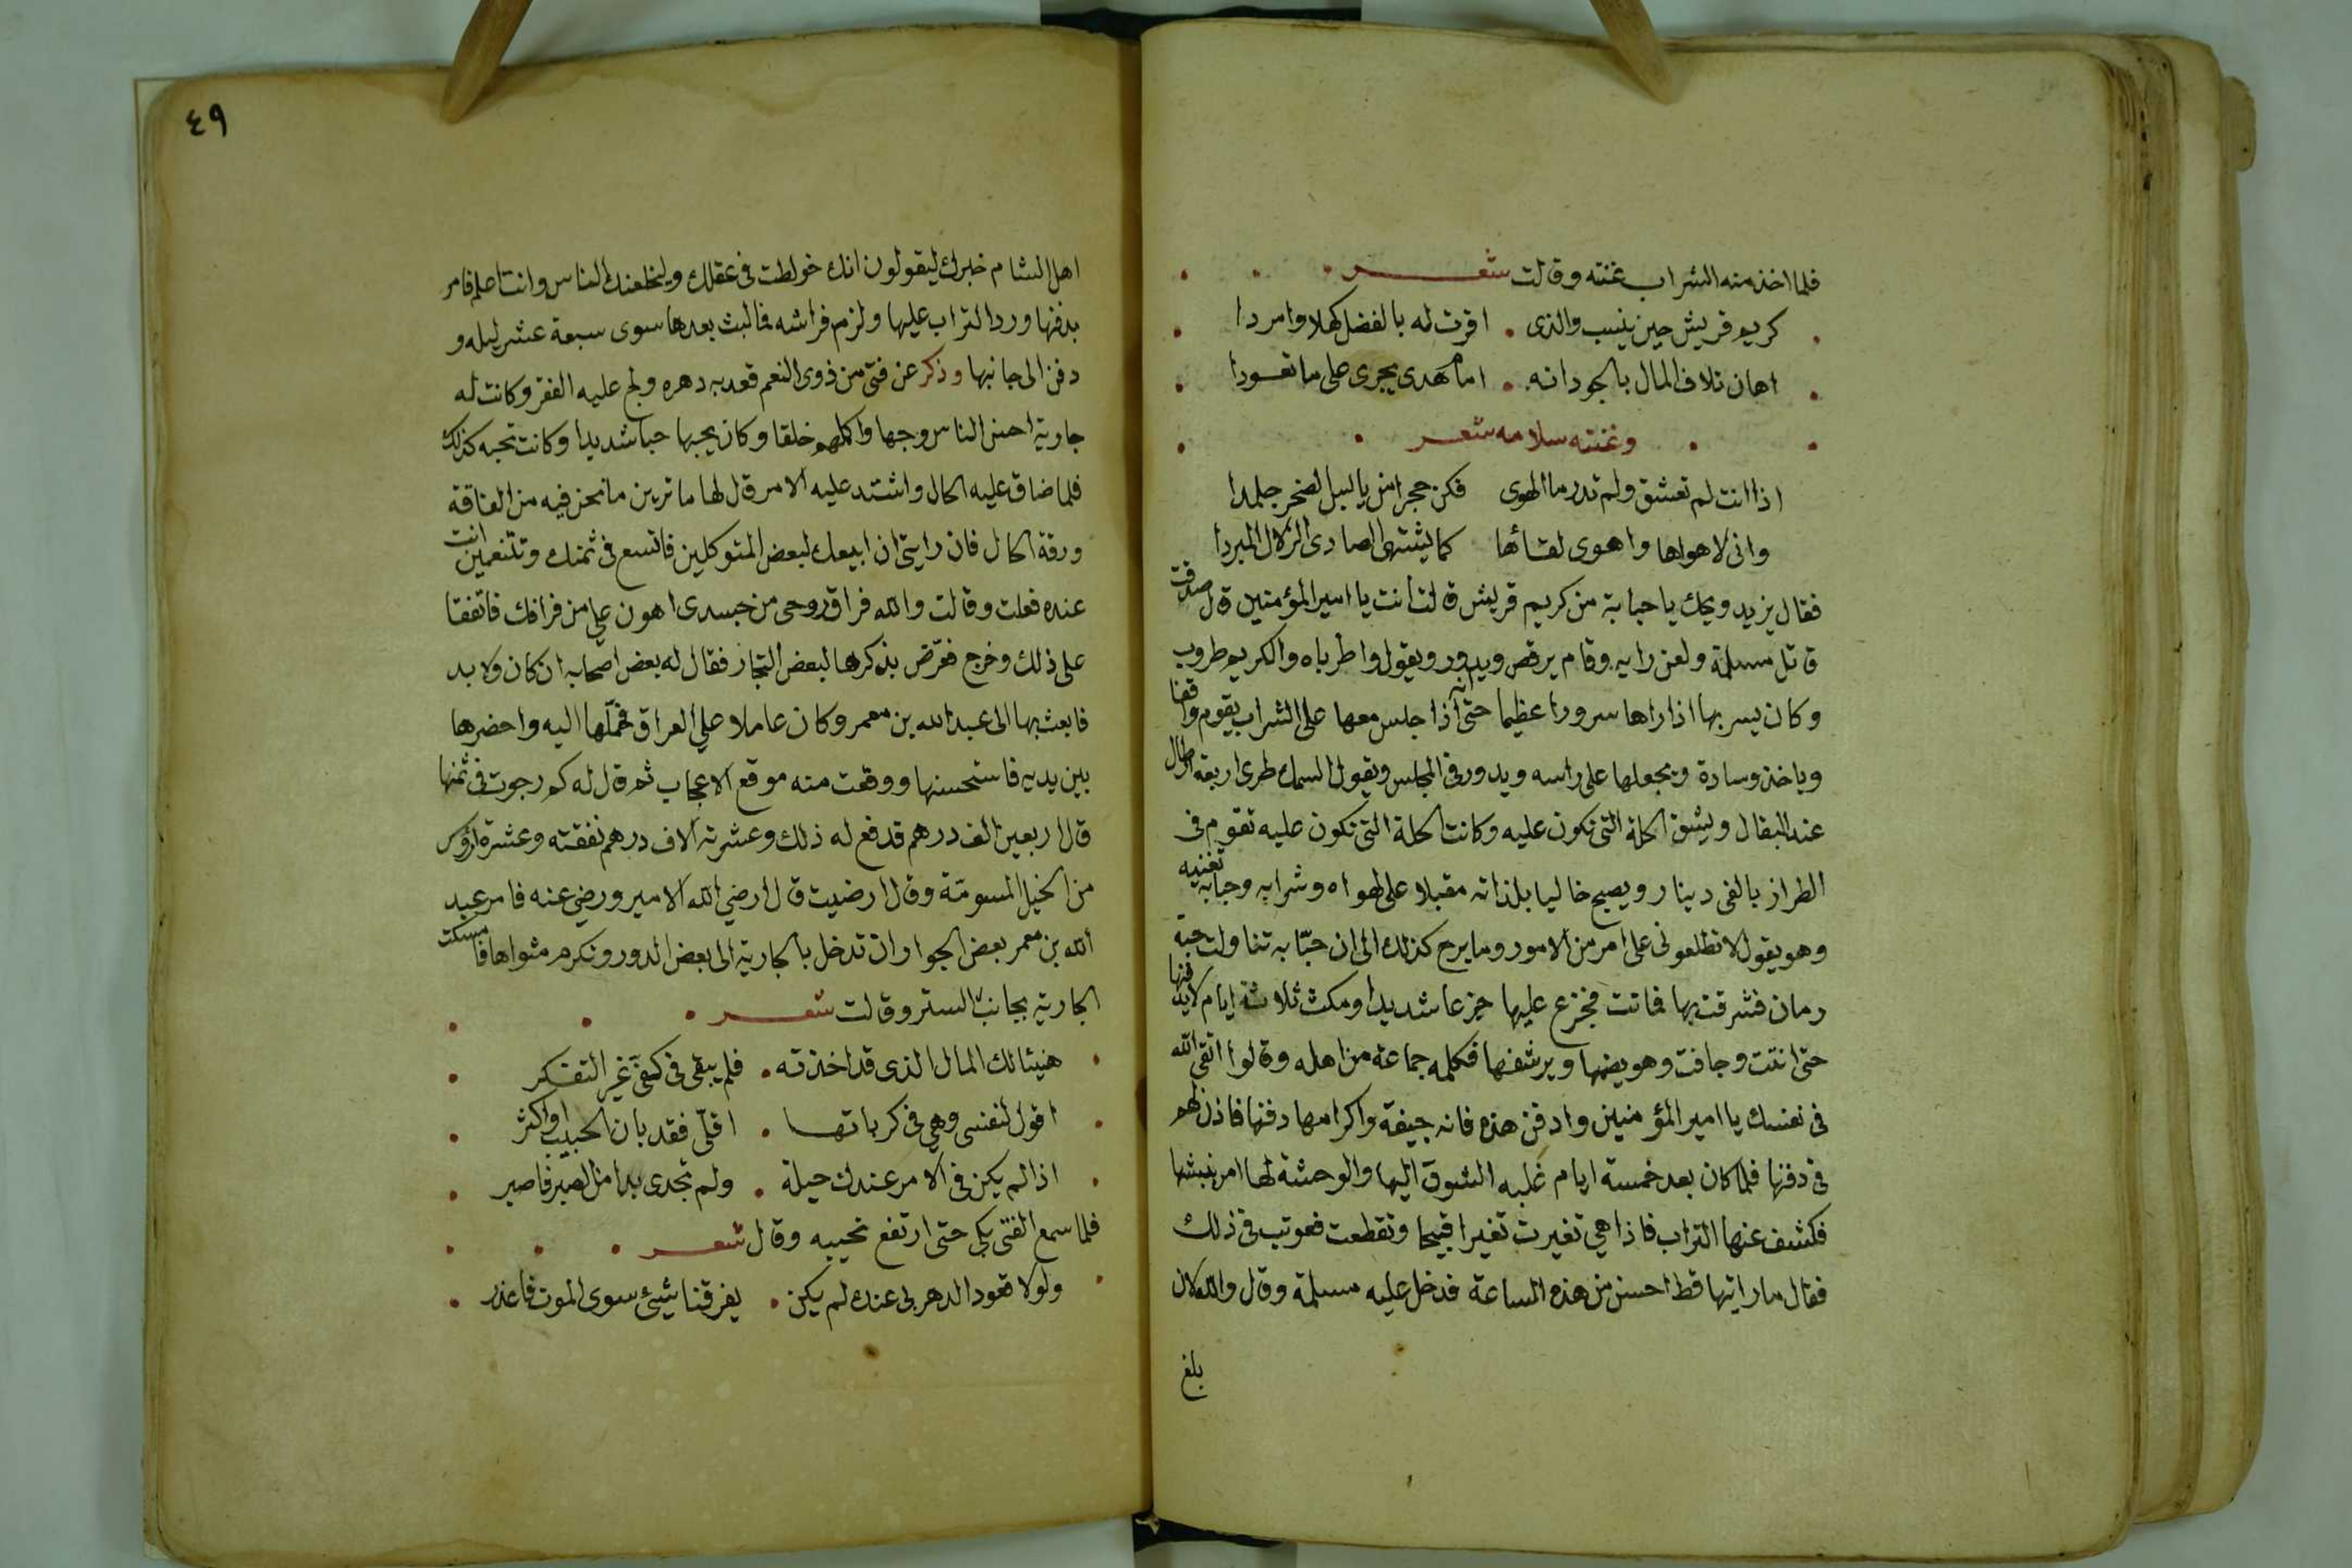 فلما اخذ منه الشراب غنته وقالت شعر
كريم قريش حين ينسب والذى اقرت له بالفضل كهلا وامردا
اهان تلاف المال بالجود انه امام هدى يجرى على ما تعودا
وغنته سلامه شعر
اذا انت لم تعشق ولم تدر ما الهوى فكن حجرا من يابس الصخر جلمدا
وانى لاهواها واهوى لقائها كما يشتهى الصادى الزلال المبردا
فقال يزيد ويحك يا حبابة من كريم قريش قالت انت يا امير المؤمنين قال صدقت
قاتل مسلمة ولعن رايه وقام يرقص ويدور ويقول واطرباه والكريم طروب
وكان يسر بها اذا راها سرورا عظيما حتى انه اذا جلس معها على الشراب يقوم واقفا
وياخذ وسادة ويجعلها على راسه ويدور فى المجلس ويقول السمك طرى اربعة ارطال
عند البقال ويشق الحلة التى تكون عليه وكانت الحلة التى تكون عليه تقوم فى
الطراز بالفى دينار ويصبح خاليا بلذاته مقبلا على لهواه وشرابه وحبابه تغنيه
وهو يقول لا تطلعونى على امر من الامور وما برح كذلك الى ان حبّابه تناولت حبة
رمان فشرقت بها فماتت فجزع عليها جزعا شديدا ومكث ثلاثة ايام لا يدفنها
حتى انتنت وجافت وهو يضمها ويرشفها فكلمه جماعة من اهله وقالوا اتقى الله
فى نفسك يا امير المؤمنين وادفن هذه فانه جيفة واكرامها دفنها فاذن لهم
فى دفنها فلما كان بعد خمسة ايام غلبه الشوق اليها والوحشة لها امر نبشها
فكشف عنها التراب فاذا هي تغيرت تغيرا قبيحا وتقطعت فعوتب فى ذلك
فقال ما رايتها قط احسن من هذه الساعة فدخل عليه مسلمة وقال والله لان
بلغ
٤٩
اهل الشام خبرك ليقولون انك خولطت فى عقلك وليخلعنك الناس وانت اعلم فامر
بدفنها ورد التراب عليها ولزم فراشه فما لبث بعدها سوى سبعة عشر ليله و
دفن الى جانبها وذكر عن فتى من ذوى النعم قعد به دهره ولح عليه الفقر وكانت له
جارية احسن الناس وجها واكملهم خلقا وكان يحبها حبا شديدا وكانت تحبه كذلك
فلما ضاق عليه الحال واشتد عليه الامر قال لها ما ترين ما نحن فيه من الفاقة
ورقة الحال فان رايتى ان ابيعك لبعض المتوكلين فاتسع فى ثمنك وتتنعمين انت
عنده فعلت وقالت والله فراق روحى من جسدى اهون علي من فراقك فاتفقا
على ذلك وخرج فعرّض بذكرها لبعض التجار فقال له بعض اصحابه ان كان ولا بد
فابعث بها الى عبد الله بن معمر وكان عاملا علي العراق فحمّلها اليه واحضرها
بين يديه فاستحسنها ووقعت منه موقع الاعجاب ثم قال له كم رجوت فى ثمنها
قال اربعين الف درهم قد دفع له ذلك وعشرة الاف درهم نفقته وعشرة ارؤس
من الخيل المسومّة وقال ارضيت قال ارضي الله الامير ورضي عنه فامر عبد
الله بن معمر بعض الجوار ان تدخل بالجارية الى بعض الدور وتكرم مثواها فامسكت
الجارية بجانب الستر وقالت شعر
هنيئا لك المال الذى قد اخذته فلم يبقى فى كفى غير التفكر
اقول لنفسى وهى فى كرباتها اقلّى فقد بان الحبيب او اكثر
اذا لم يكن فى الامر عندك حيلة ولم تجدى بدا من الصبر فاصبر
فلما سمع الفتى بكى حتى ارتفع نحيبه وقال شعر
ولولا قعود الدهر بى عندك لم يكن يفرقنا شيئ سوى الموت فاعذر